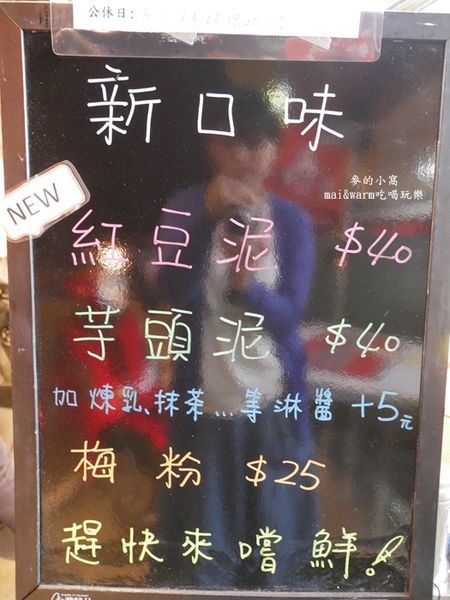 公休日:
新口味
麥的小窩
mai&warm吃喝玩樂
NEW
紅豆泥 $40
芋頭泥 $40
加煉乳、抹茶...等淋醬+5元
梅粉 $25
趕快來嚐鮮!